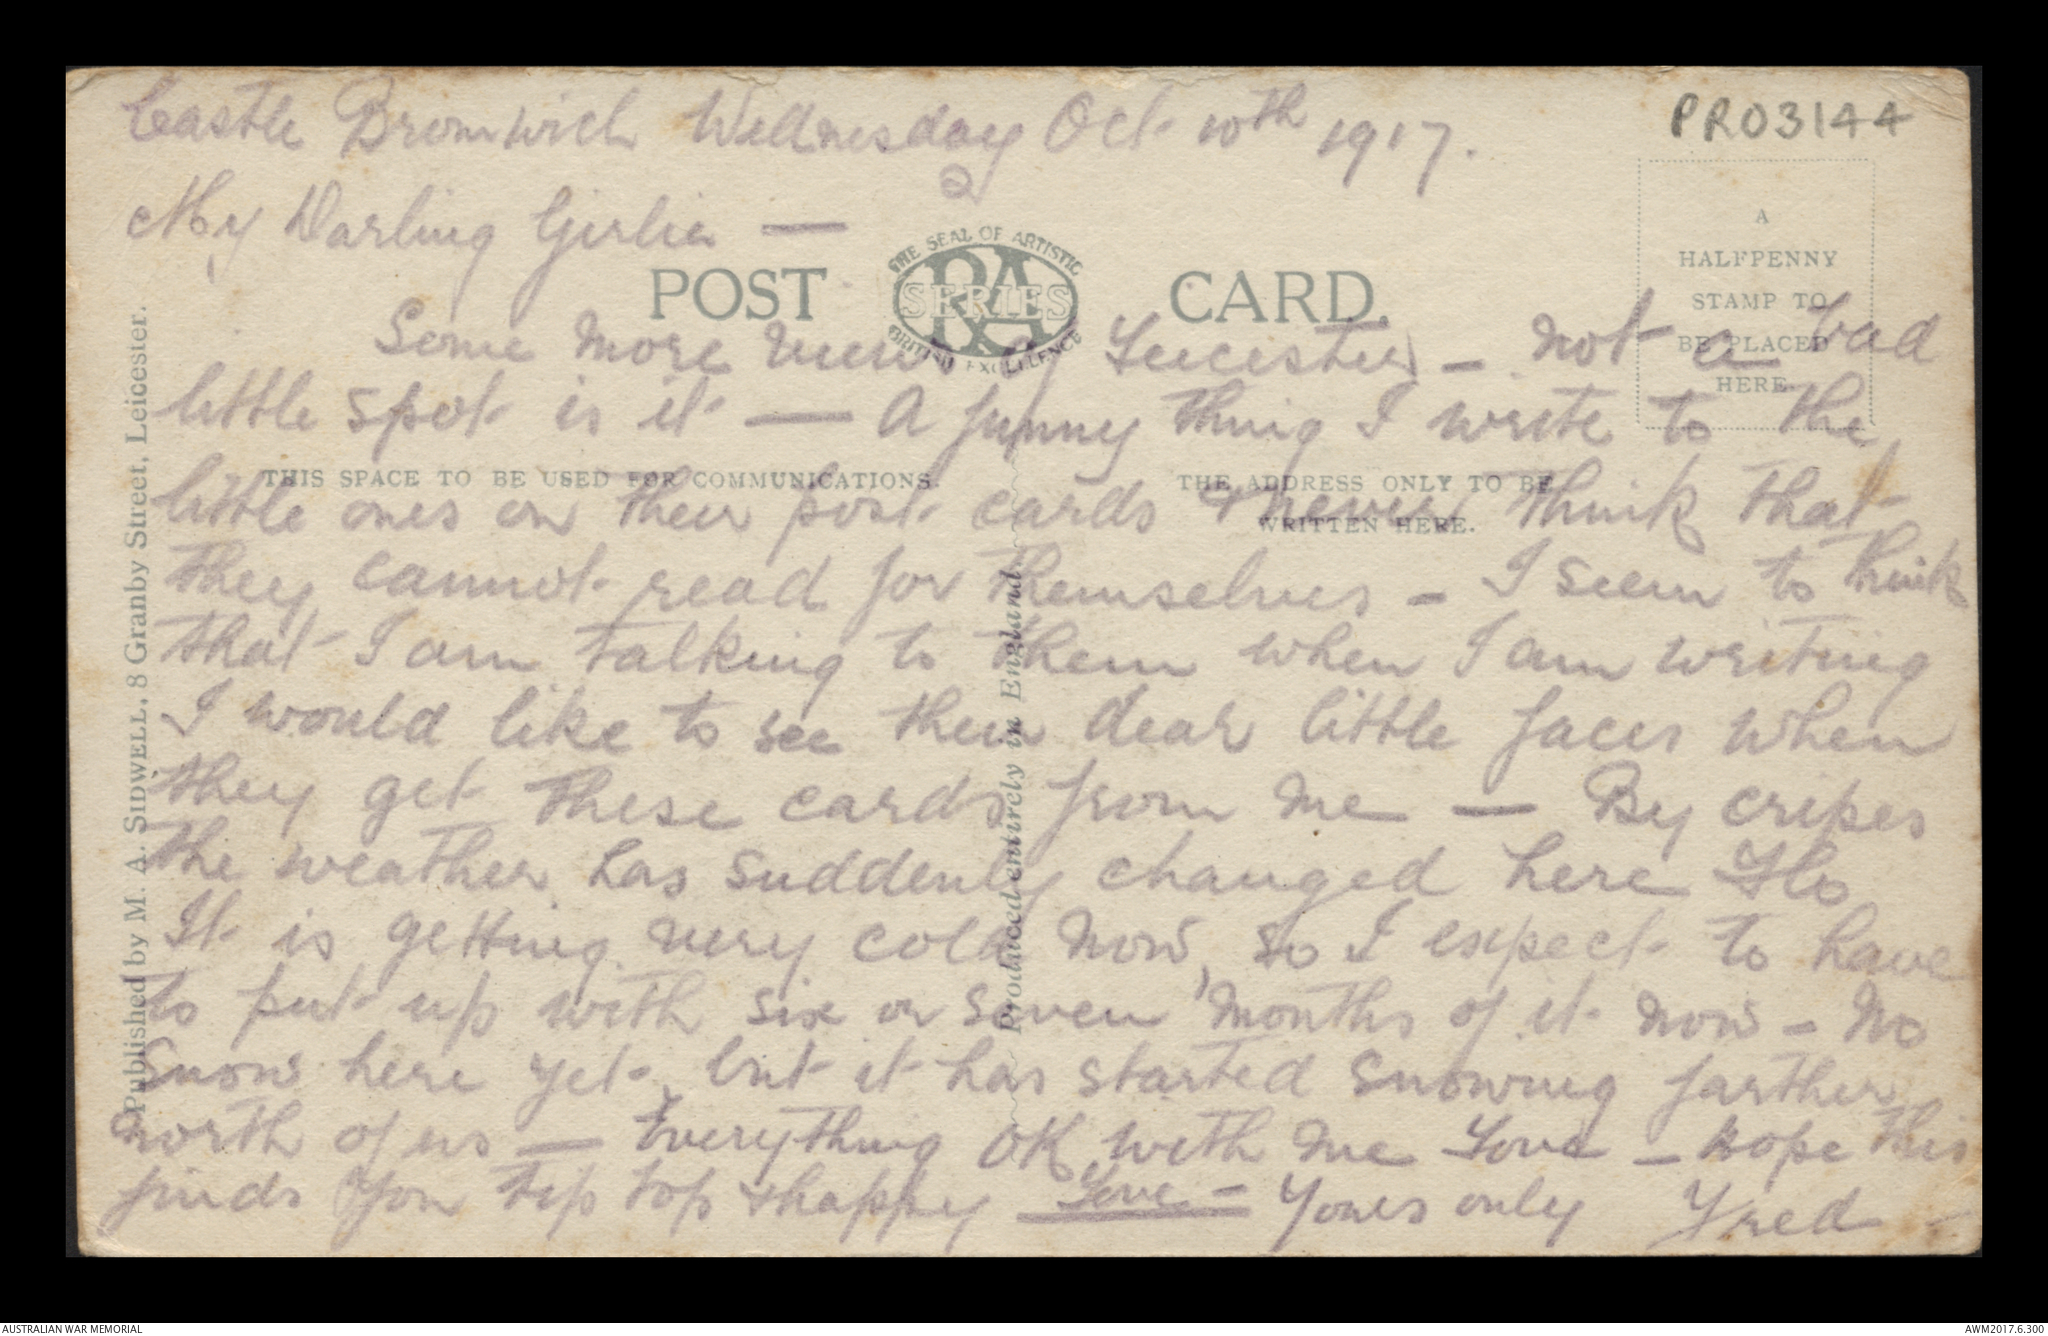 Castle Bromwich Wednesday Oct. 10th 1917.
PR03144
2
My Darling Girlie —
THE SEAL OF ARTISTIC
RA
SERIES
BRITISH EXCELLENCE
POST CARD.
A
HALFPENNY
STAMP TO
BE PLACED
HERE.
Some more views of Leicester — not a bad
little spot is it — A funny thing I write to the
THIS SPACE TO BE USED FOR COMMUNICATIONS.
THE ADDRESS ONLY TO BE
WRITTEN HERE.
little ones on their post cards & never think that
they cannot read for themselves — I seem to think
that I am talking to them when I am writing
I would like to see their dear little faces when
they get these cards from me — By cripes
the weather has suddenly changed here Flo
It is getting very cold now, so I expect to have
to put up with six or seven months of it now — No
snow here yet, but it has started snowing farther
north of us — Everything OK with me Love — Hope this
finds you tip top & happy Love — Yours only Fred
Published by M. A. SIDWELL, 8 Granby Street, Leicester.
Produced entirely in England
AUSTRALIAN WAR MEMORIAL
AWM2017.6.300